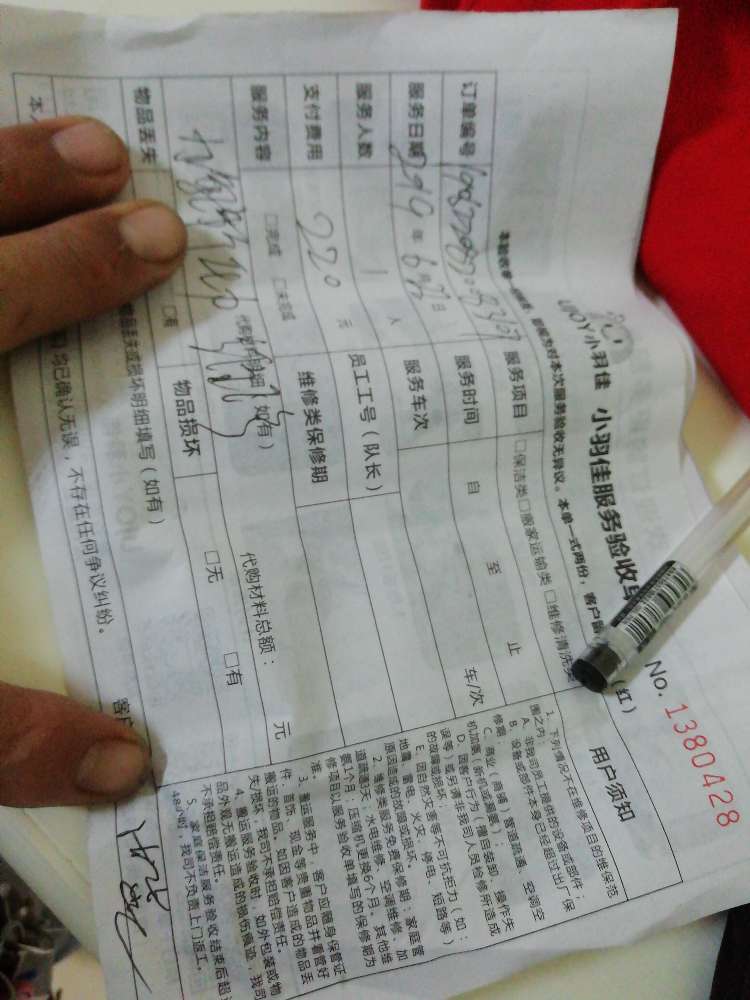 UJOY小羽佳 小羽佳服务验收单
No. 1380428
对本次服务验收无异议。本单一式两份,客户留
(红)
订单编号
服务项目 □保洁类□搬家运输类 □维修清洗类
服务日期 2019年6月 日
服务时间 自 至 止
服务人数 1 人
服务车次 车/次
支付费用 220 元
员工工号(队长)
服务内容 □完成 □未完成
维修类保修期
(如有)
代购材料总额: 元
物品丢失 □有
物品损坏 □无 □有
物品丢失或损坏明细填写(如有)
均已确认无误,不存在任何争议纠纷。
用户须知
1、下列情况不在维修项目的维保范
围之内:
A、非我司员工提供的设备或部件;
B、设备或部件本身已经超过出厂保
修期;
C、商业(商铺)管道疏通、空调空
机加氟(拆机或漏氟);
D、因客户行为(擅自装卸、操作失
误等)或聘请非我司人员检修所造成
的故障或损坏;
E、因自然灾害等不可抗拒力(如:
地震、雷电、火灾、停电、短路等)
原因造成的故障或损坏。
2、维修类服务免责保修期:家庭管
道疏通3天;水电维修、空调维修、加
氟1个月;压缩机更换6个月。其他维
修项目以服务验收单填写的保修期为
准。
3、搬运服务中,客户应随身保管证
件、首饰、现金等贵重物品并看管好
搬运的物品。如因客户造成的物品丢
失/损坏,我司不承担赔偿责任。
4、搬运服务验收时,如外包装或物
品外观无搬运造成的损伤痕迹,我司
不承担赔偿责任。
5、家庭保洁服务验收结束后超过
48小时,我司不负责上门返工。